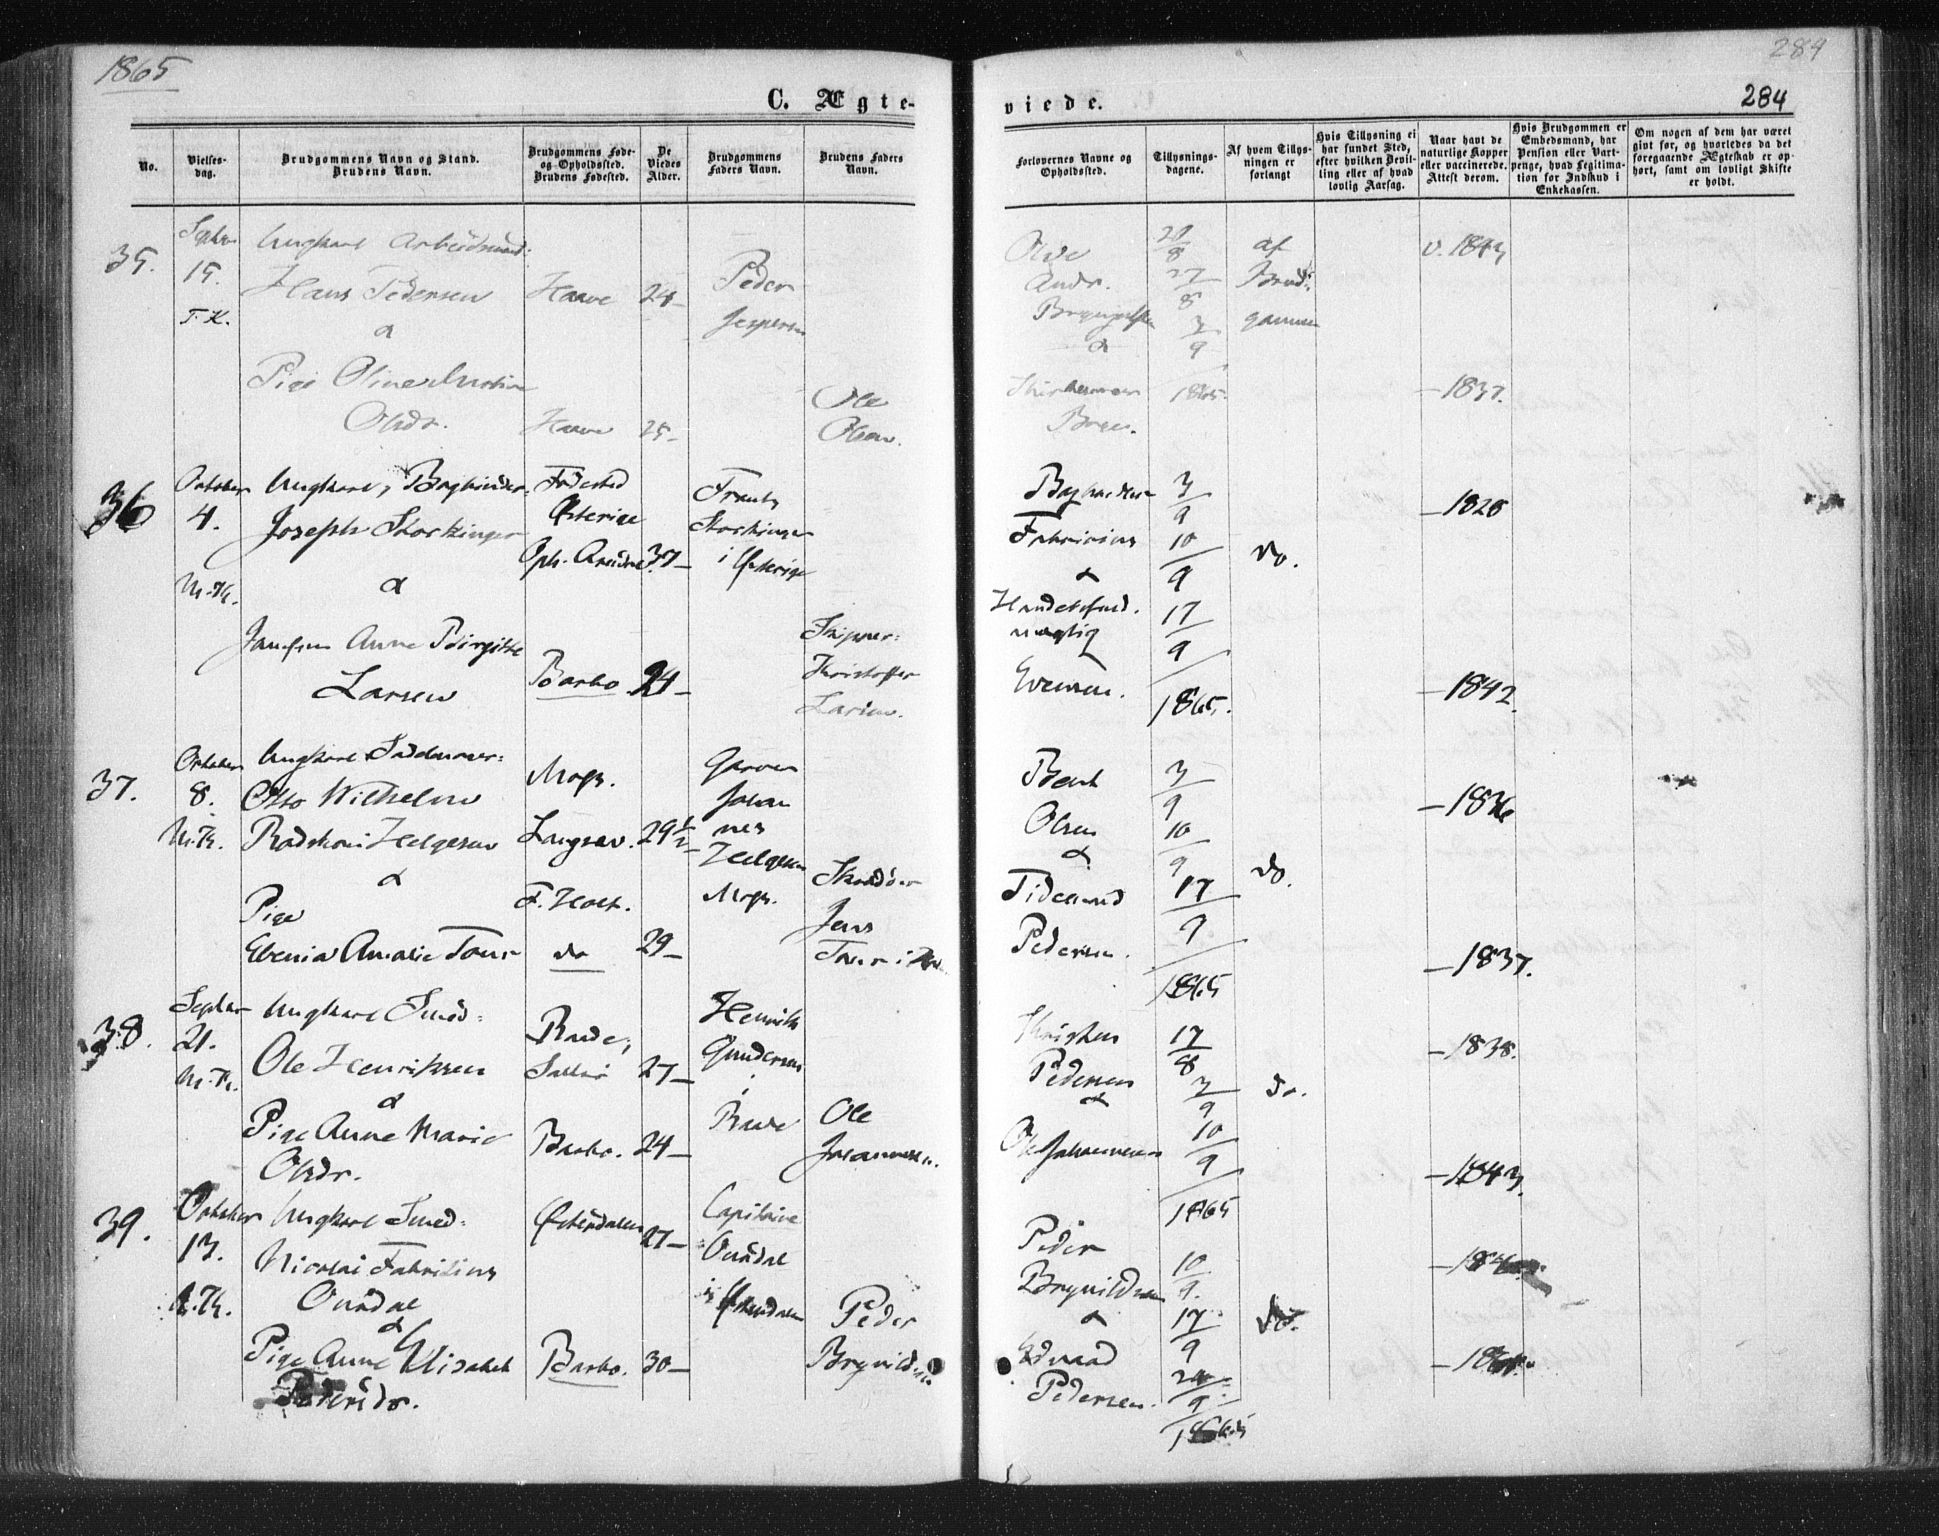 1865
284
C. Ægte-
viede.
284
No.
Vielses-
dag.
Brudgommens Navn og Stand.
Brudens Navn.
Brudgommens Føde-
og Opholdssted.
Brudens Fødested.
De
Viedes
Alder.
Brudgommens
Faders Navn.
Brudens Faders
Navn.
Forlovernes Navne og
Opholdssted.
Tillysnings-
dagene.
Af hvem Tillys-
ningen er
forlangt
Hvis Tillysning ei
har fundet Sted,
efter hvilken Bevil-
ling eller af hvad
lovlig Aarsag.
Naar havt de
naturlige Kopper
eller vaccinerede.
Attest derom.
Hvis Brudgommen er
Embedsmand, har
Pension eller Vart-
penge, hvad Legitima-
tion for Indskud i
Enkekassen.
Om nogen af dem har været
givt før, og hvorledes da det
foregaaende Ægteskab er op-
hørt, samt om lovligt Skifte
er holdt.
35.
Septbr
15.
T. K.
Ungkarl Arbeidsmand:
Hans Pedersen
&
Pige Oline
Olsdr.
24-
25-
Peder
Jespersen
Ole
Olsen.
Andr.
&
27/8
3/9
1865.
af
Brud-
gommen
v. 1843
- 1837.
36
October
4.
M. K.
Ungkarl, Bogbinder
Joseph Stockinger
&
Jomfru Anne Birgitte
Larsen
Fødested
Østerige
Oph. Arendal
Barbo
37-
24-
Frants
Stockinger
i Østerige
Skipper:
Christoffer
Larsen.
Bogbinder
Fabricius
&
Handelsfuld-
mægtig
Evensen.
3/9
10/9
17/9
1865.
do.
- 1828
- 1842.
37.
October
8.
M. K.
Ungkarl
Otto Wilhelm
Helgesen
&
Pige
Evenia Amalie Tour
Langsev.
F. Holt.
do
29 1/2
29-
Johan
nes
Helgesen
Jens
Tour i
Bent
Olsen
&
Tidemand
Pedersen.
3/9
10/9
17/9
1865
do.
- 1836
- 1837.
38.
Septbr
21.
M. K.
Ungkarl Smed:
Ole Henriksen
&
Pige Anne Marie
Olsdr.
Barbo.
27-
24-
Henrik
Gundersen
Ole
Johannesen.
Christen
Pedersen
&
Ole Johannesen
17/8
3/9
10/9
1865
do.
- 1838.
- 1843.
39.
October
13.
M. K.
Ungkarl Smed:
Nicolai Fabritius
&
Pige Anne Elisabeth
Pedersdr.
Østerdalen
Barbo.
27-
30-
Capitaine
i Østerdalen
Peder
Brynildsen
Peder
Brynildsen
&
Edvard
Pedersen.
10/9.
17/9
24/9
1865
do.